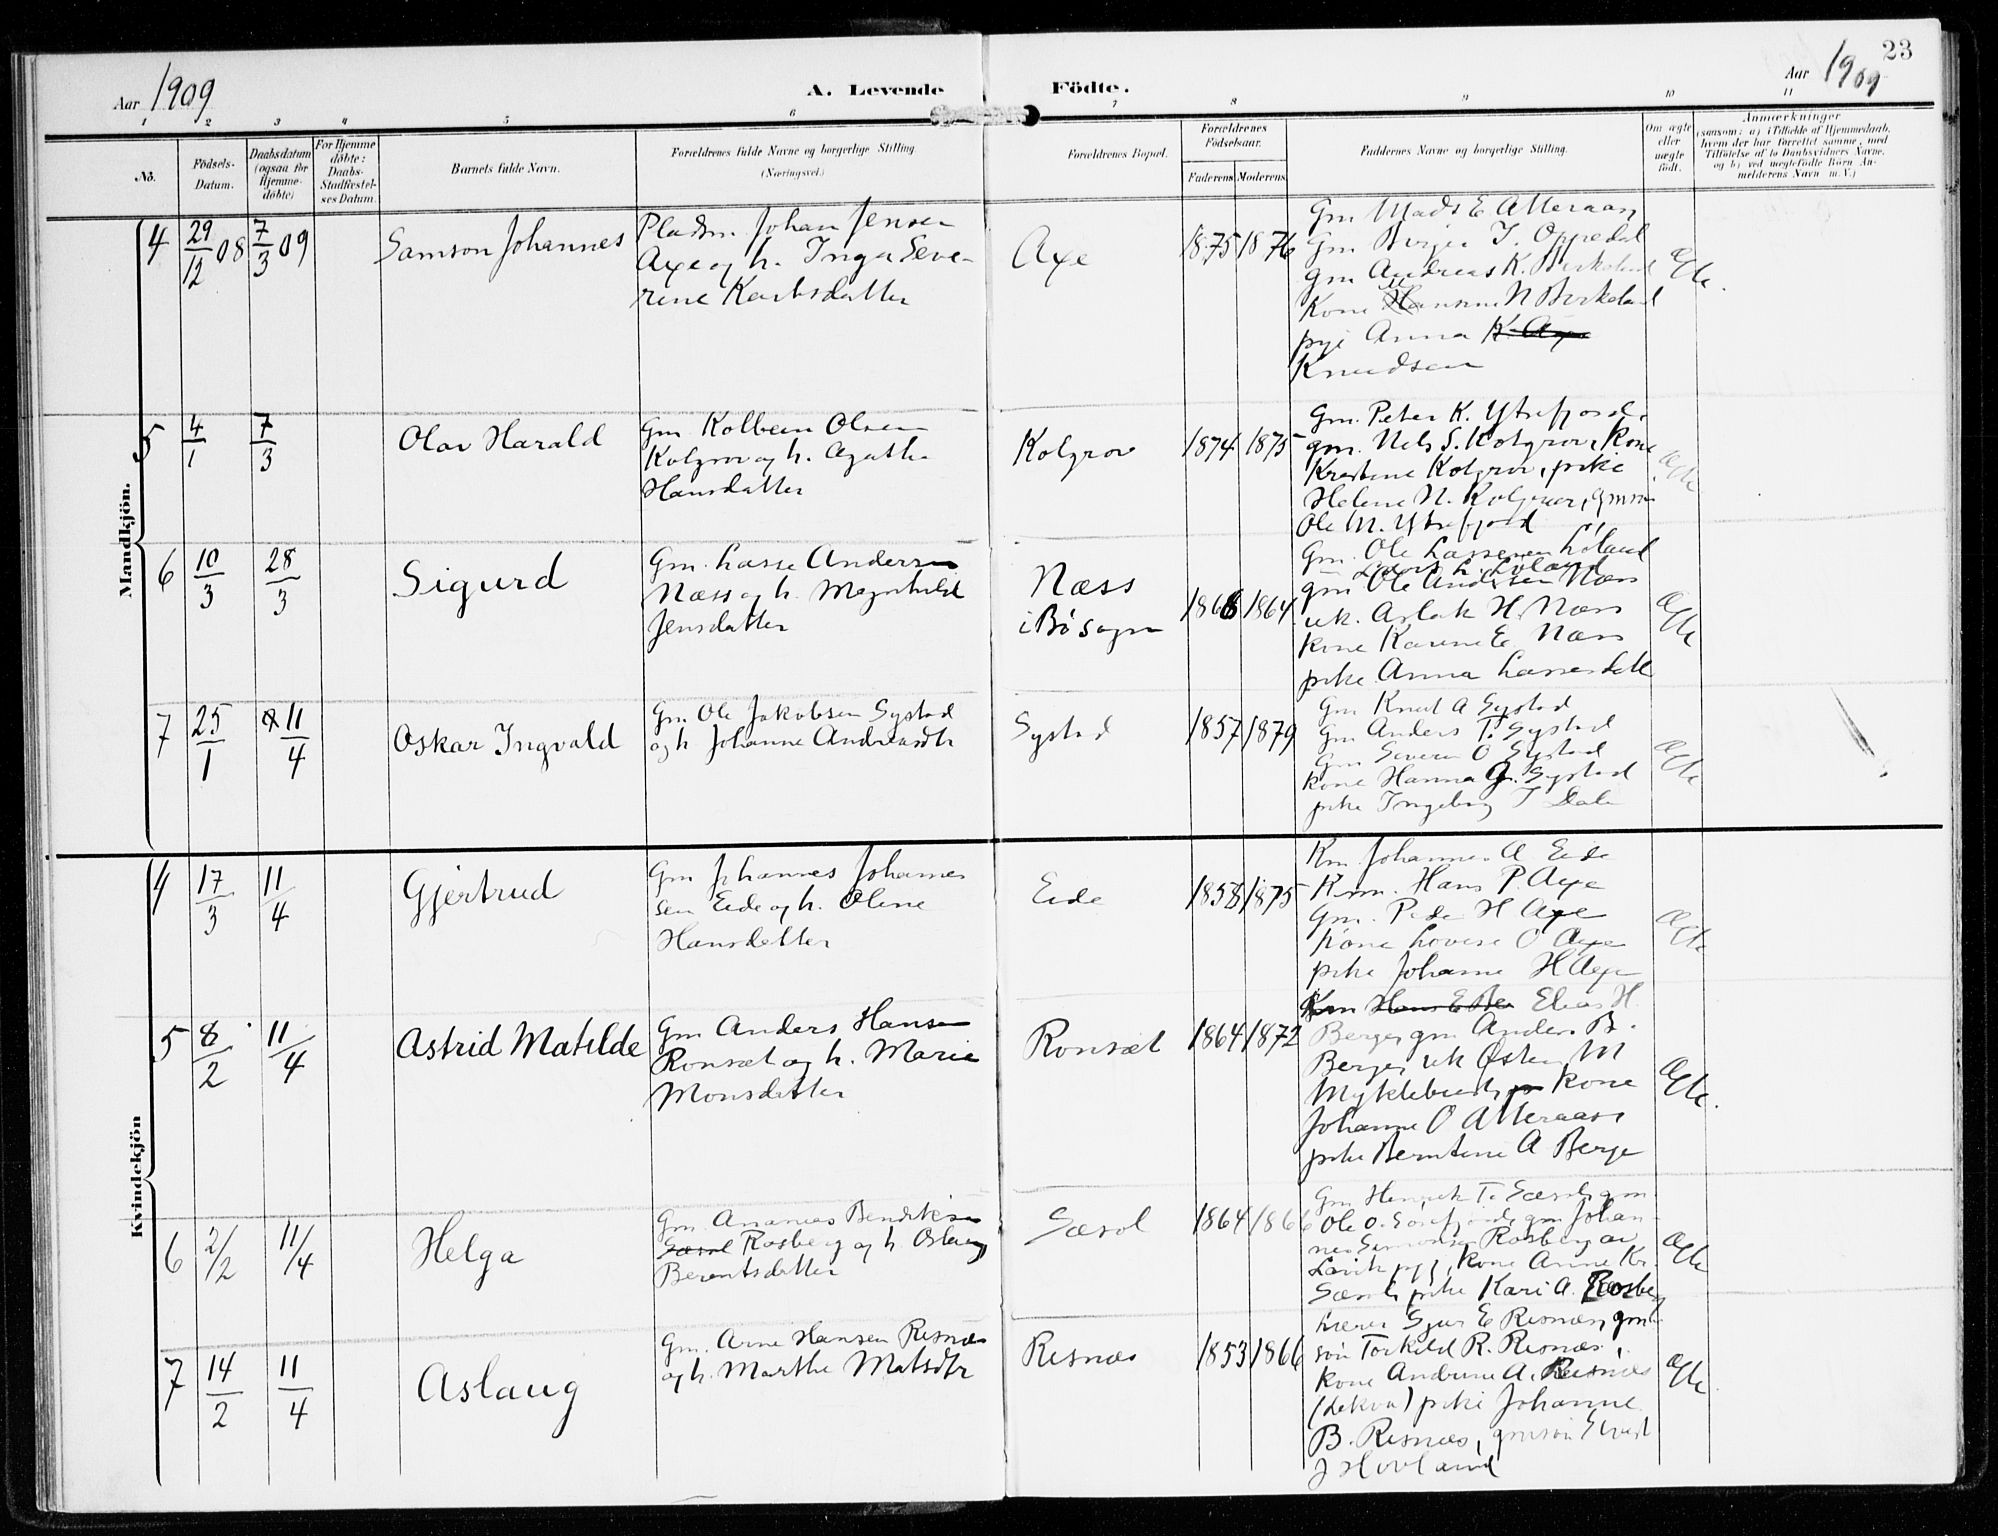 23
Aar 1909
A. Levende Födte.
Aar 1909
1 2 3 4 5 6 7 8 9 10 11
No.
Födsels-Datum.
Daabsdatum (ogsaa for Hjemme-döbte)
For Hjemme döbte: Daabs-Stadfæstel-ses Datum.
Barnets fulde Navn.
Forældrenes fulde Navne og borgerlige Stilling
(Næringsvei.)
Forældrenes Bopæl.
Forældrenes Födselsaar.
Faderens Moderens
Faddernes Navne og borgerlige Stilling.
Om ægte eller uægte födt.
Anmærkninger
(saasom: a) i Tilfælde af Hjemmedaab,
hvem der har forrettet samme, med
Tilföielse af to Daabsvidners Navne,
og b) ved uægtefödte Börn An-
melderens Navn m. V.)
Mandkjön.
4 29/12 08 7/3 09 Samson Johannes
Pladsm. Johan Jensen
Axe og h. Inga Seve-
rine Karlsdatter
Axe
1875 1876
Gm Mads E Atteraas
Gm Birger I. Oppedal
gm Andreas K. Birkeland
Kone N Birkeland
Anna K. Axe
Knudsen
ægte.
5 4/1 7/3 Olav Harald
Gm Kolbein Olsen
Kolgrov og h. Agathe
Hansdatter
Kolgrov
1874 1875
Gm. Peter K. Ytrefjord.
gm. Nels S. Kolgrov, Kone
Kristine Kolgrov, pike
Helene N. Kolgrov, gmsøn
Ole M. Ytrefjord
ægte
6 10/3 28/3 Sigurd
Gm. Lasse Andersen
Næss og h. Magnhild
Jensdatter
Næss
i Bø sogn
1866 1864
Gm. Ole Lassesen Løland
gm Ole Andersen Næss
uk. Aslak H. Næss
kone Karine E. Næss
pike Anna Lassesdatt
ægte
7 25/1 11/4 Oskar Ingvald
Gm. Ole Jakobsen Systad
og h Johanne Andreasdtr
Systad
1857 1879
Gm Knut A Systad
Gm Anders T. Systad
Gm Severin O Systad
kone Hanna G. Systad
pike Ingeborg T Dale
ægte
Kvindekjön
4 17/3 11/4 Gjertrud
Gm Johannes Johannes
sen Eide og h. Oline
Hansdatter
Eide
1858 1875
Km Johannes A Eide
Kmn. Hans P. Axe
Gm. Peder H Axe
Kone Lovise O Axe
pike Johanne H Axe
ægte
5 8/2 11/4 Astrid Matilde
Gm Anders Hansen
Ronset og h. Marie
Monsdatter
Ronset
1864 1872
Km Elias H.
Berge, gm Anders B.
Berge, uk Østen M
Myklebust, kone
Johanne O Atteraas
pike Berntine A Berge
ægte.
6 2/2 11/4 Helga
Gm. Ananias Bendiksen
Særol Rosberg og h.
Berentsdatter
Særol
1864 1866
Gm Henrik T. gm
Ole O. Sørefjord, gm Johan-
nes Simonsen Rosberg av
Lavik pgj, kone Anne Kr.
pike Kari A. Rosberg
ægte
7 14/2 11/4 Aslaug
Gm. Arne Hansen Risnæs
og h. Marthe Matsdtr
Risnæs
1853 1866
Lærer Sjur E Risnæs, gm-
søn Torkild R. Risnæs,
kone Andrine A. Risnæs
pike Johanne
B. Risnæs, gmsøn
J Hovland
ægte